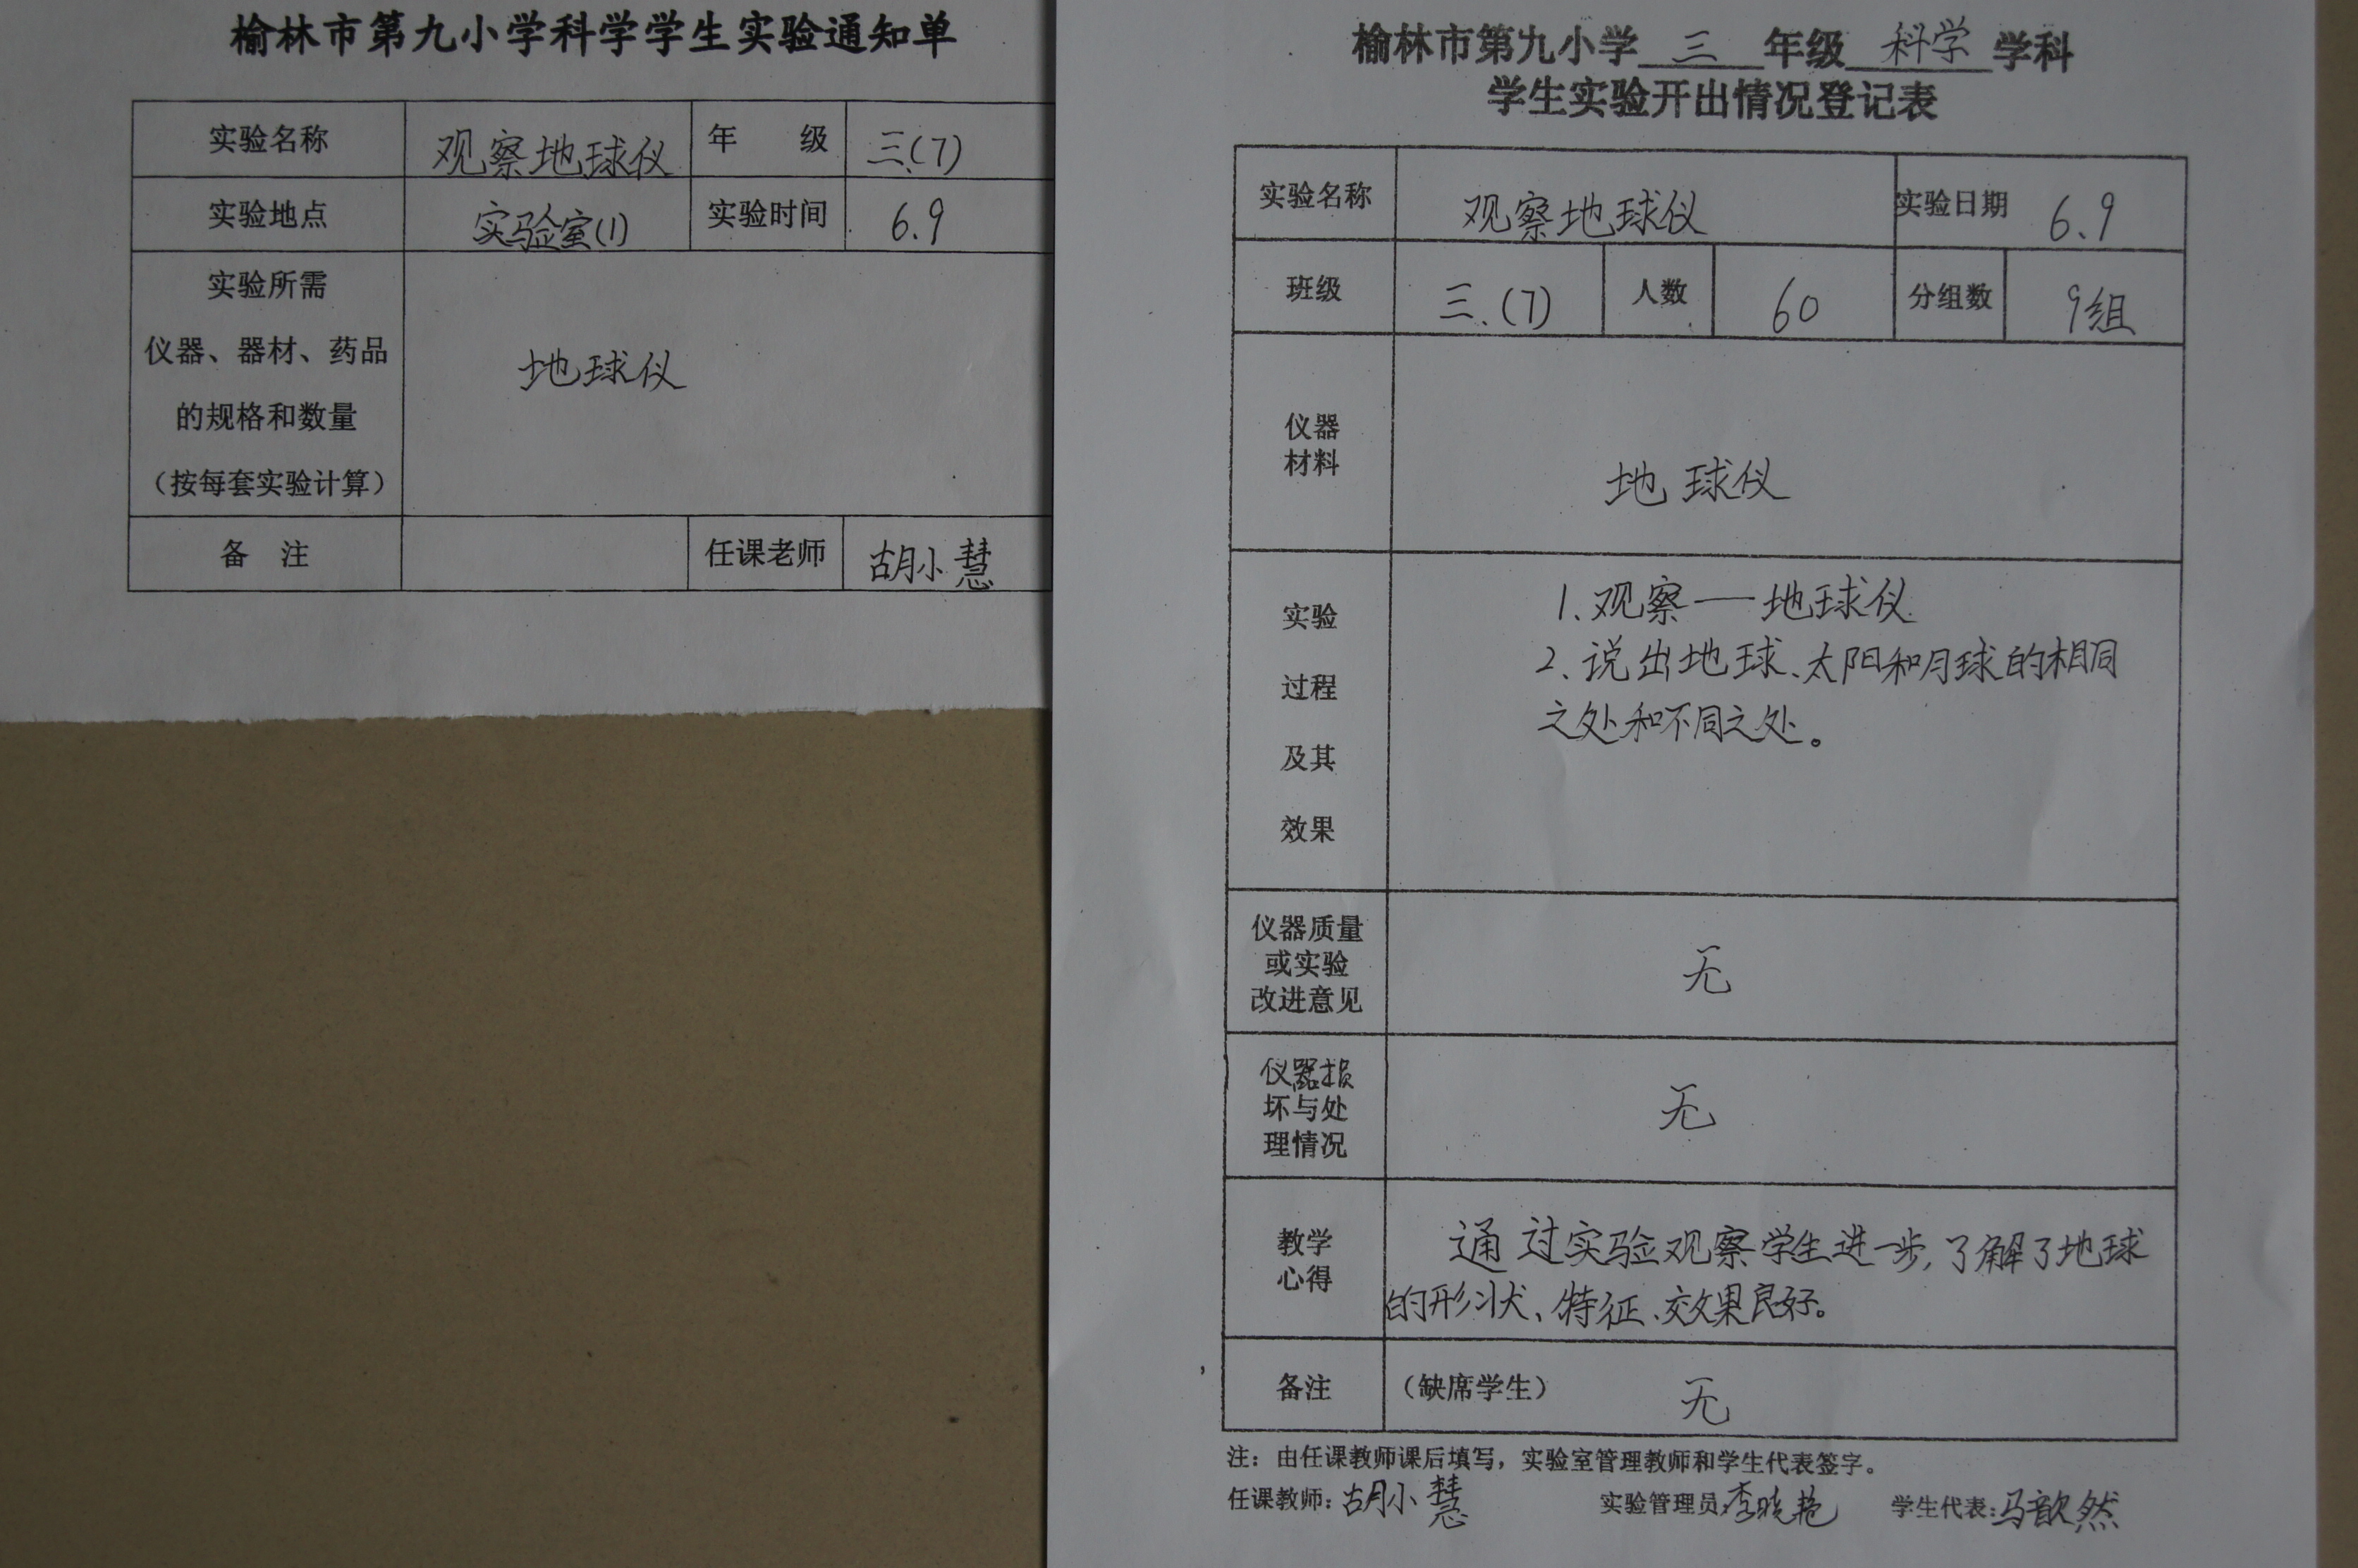 榆林市第九小学科学学生实验通知单
实验名称 观察地球仪 年 级 三(7)
实验地点 实验室(1) 实验时间 6.9
实验所需
仪器、器材、药品
的规格和数量
（按每套实验计算）
地球仪
备 注 任课老师 胡小慧
榆林市第九小学 三 年级 科学 学科
学生实验开出情况登记表
实验名称 观察地球仪 实验日期 6.9
班级 三.(7) 人数 60 分组数 9组
仪器
材料
地球仪
实验
过程
及其
效果
1.观察——地球仪.
2.说出地球、太阳和月球的相同
之处和不同之处。
仪器质量
或实验
改进意见
无
仪器损
坏与处
理情况
无
教学
心得
通过实验观察学生进一步,了解了地球
的形状、特征、效果良好。
备注 （缺席学生） 无
注：由任课教师课后填写，实验室管理教师和学生代表签字。
任课教师：胡小慧 实验管理员:李晓艳 学生代表:马歆然